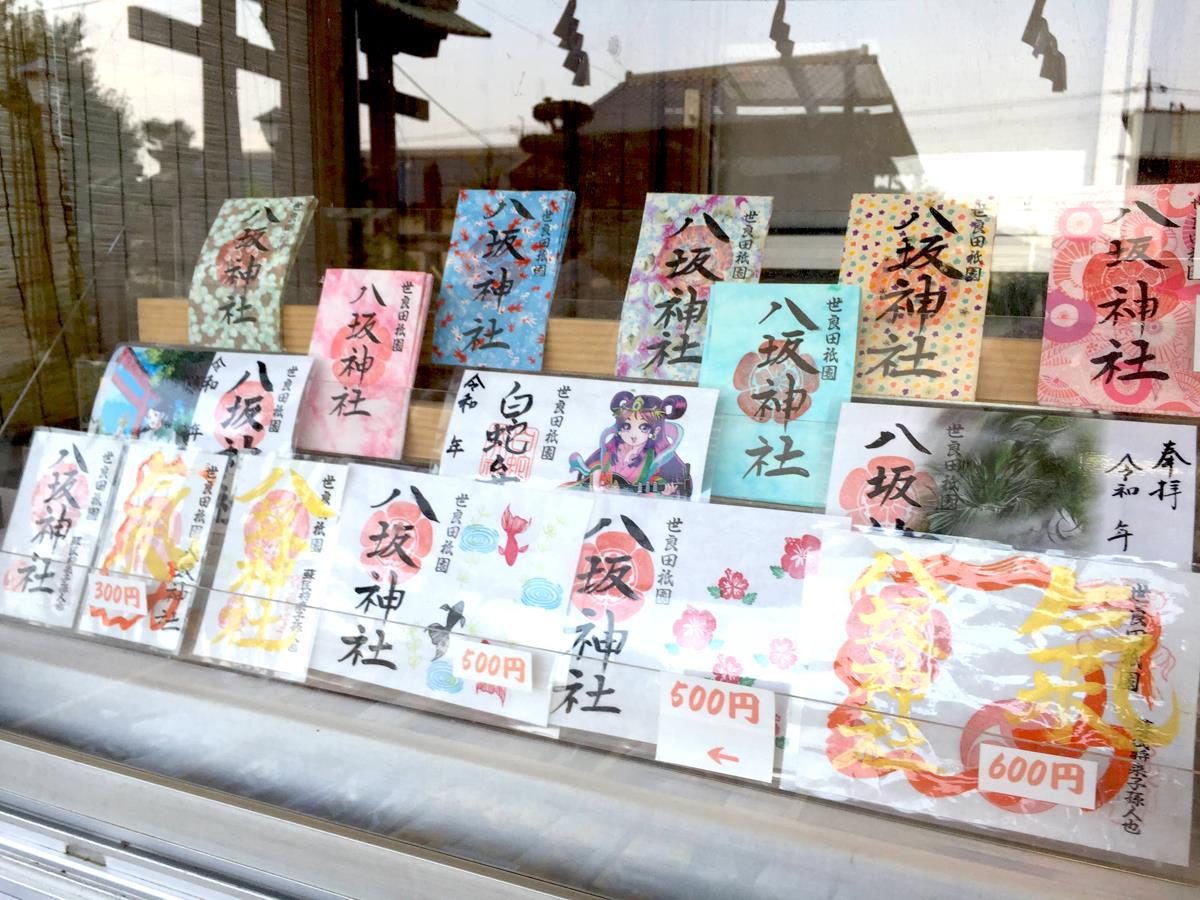 世良田祇園
八坂神社
世良田祇園
八坂神社
世良田祇園
八坂神社
世良田祇園
八坂神社
世良田祇園
八坂神社
世良田祇園
八坂神社
八坂神社
世良田祇園
八坂
令和
年
世良田祇園
白蛇
令和
年
奉拝
令和
年
世良田祇園
八坂
世良田祇園
八坂神社
300円
世良田祇園
八坂神社
蘇民将来子孫人也
世良田祇園
八坂神社
500円
世良田祇園
八坂神社
500円
←
世良田祇園
八坂神社
蘇民将来子孫人也
600円